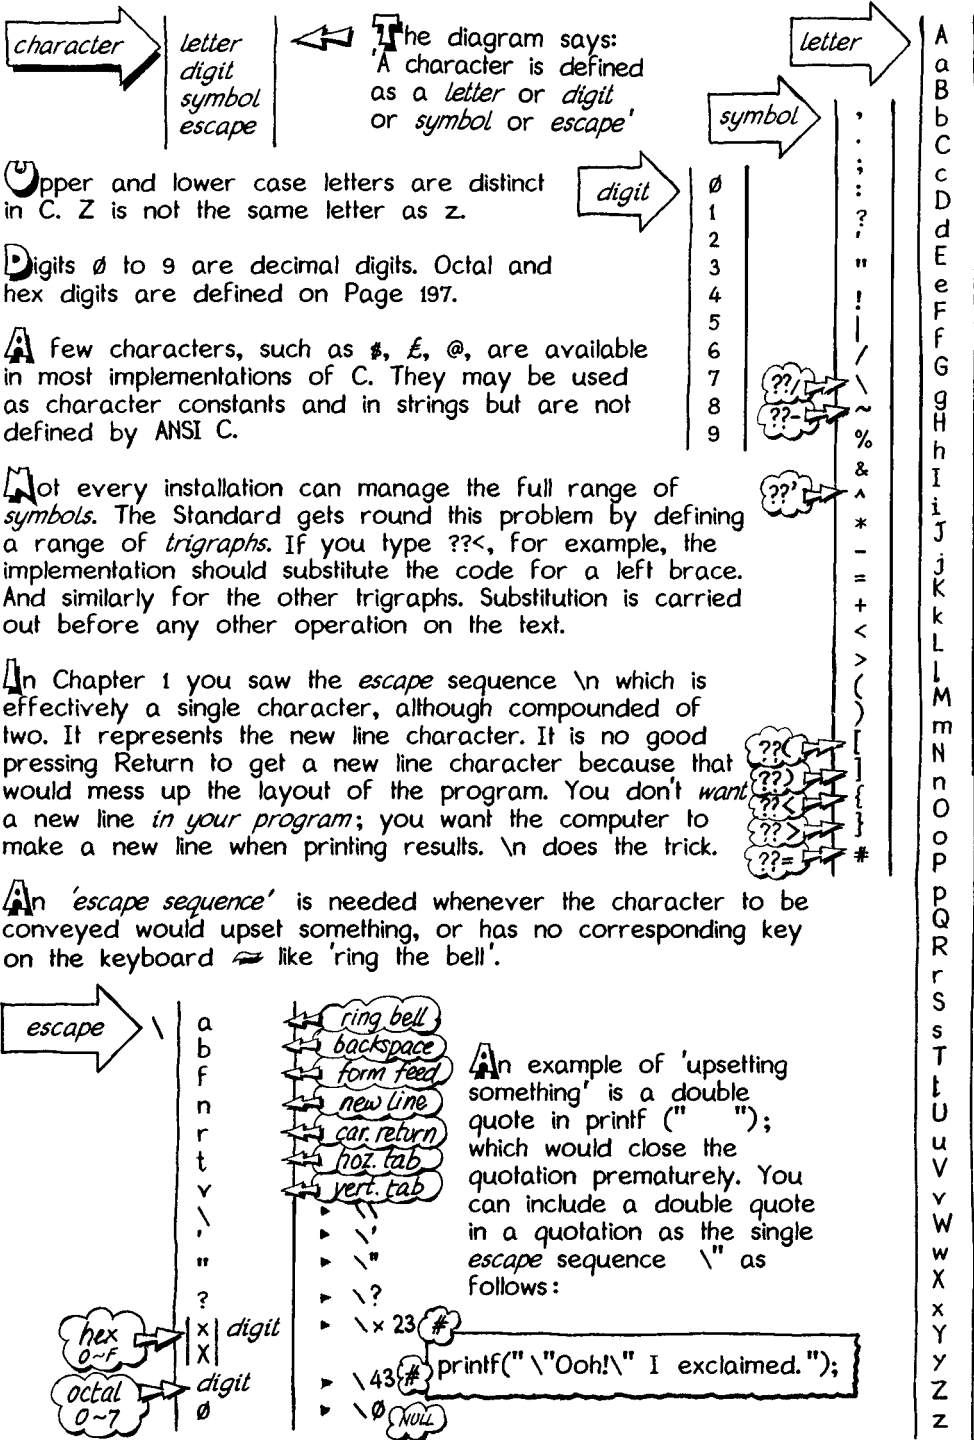 character
letter
digit
symbol
escape
The diagram says:
'A character is defined
as a letter or digit
or symbol or escape'
Upper and lower case letters are distinct
in C. Z is not the same letter as z.
Digits Ø to 9 are decimal digits. Octal and
hex digits are defined on Page 197.
A few characters, such as $, £, @, are available
in most implementations of C. They may be used
as character constants and in strings but are not
defined by ANSI C.
digit
Ø
1
2
3
4
5
6
7
8
9
symbol
,
.
;
:
?
'
"
!
|
/
??/ \
??- ~
%
&
??' ^
*
-
=
+
<
>
(
)
??( [
??) ]
??< {
??> }
??= #
letter
A
a
B
b
C
c
D
d
E
e
F
f
G
g
H
h
I
i
J
j
K
k
L
l
M
m
N
n
O
o
P
p
Q
R
r
S
s
T
t
U
u
V
v
W
w
X
x
Y
y
Z
z
Not every installation can manage the full range of
symbols. The Standard gets round this problem by defining
a range of trigraphs. If you type ??<, for example, the
implementation should substitute the code for a left brace.
And similarly for the other trigraphs. Substitution is carried
out before any other operation on the text.
In Chapter 1 you saw the escape sequence \n which is
effectively a single character, although compounded of
two. It represents the new line character. It is no good
pressing Return to get a new line character because that
would mess up the layout of the program. You don't want
a new line in your program; you want the computer to
make a new line when printing results. \n does the trick.
An 'escape sequence' is needed whenever the character to be
conveyed would upset something, or has no corresponding key
on the keyboard like 'ring the bell'.
escape \
a ring bell
b backspace
f form feed
n new line
r car. return
t hoz. tab
v vert. tab
\ \\
' \'
" \"
? \?
hex 0~F x digit \x 23 #
X
octal 0~7 digit \43 #
Ø \Ø NULL
An example of 'upsetting
something' is a double
quote in printf (" ");
which would close the
quotation prematurely. You
can include a double quote
in a quotation as the single
escape sequence \" as
follows:
printf(" \"Ooh!\" I exclaimed. ");